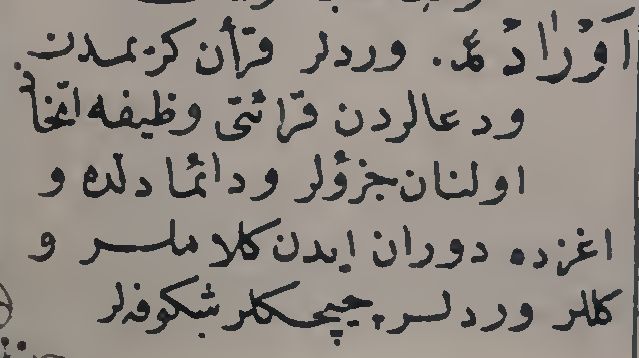 اَوْرَادْ عد. وردلر قرأن كريمدن
ودعالردن قرائتى وظيفه اتخا
اولنان جزؤلر ودائما دلده و
اغزده دوران ايدن كلاملر و
كللر وردلر. چيچكلر شكوفه‌لر